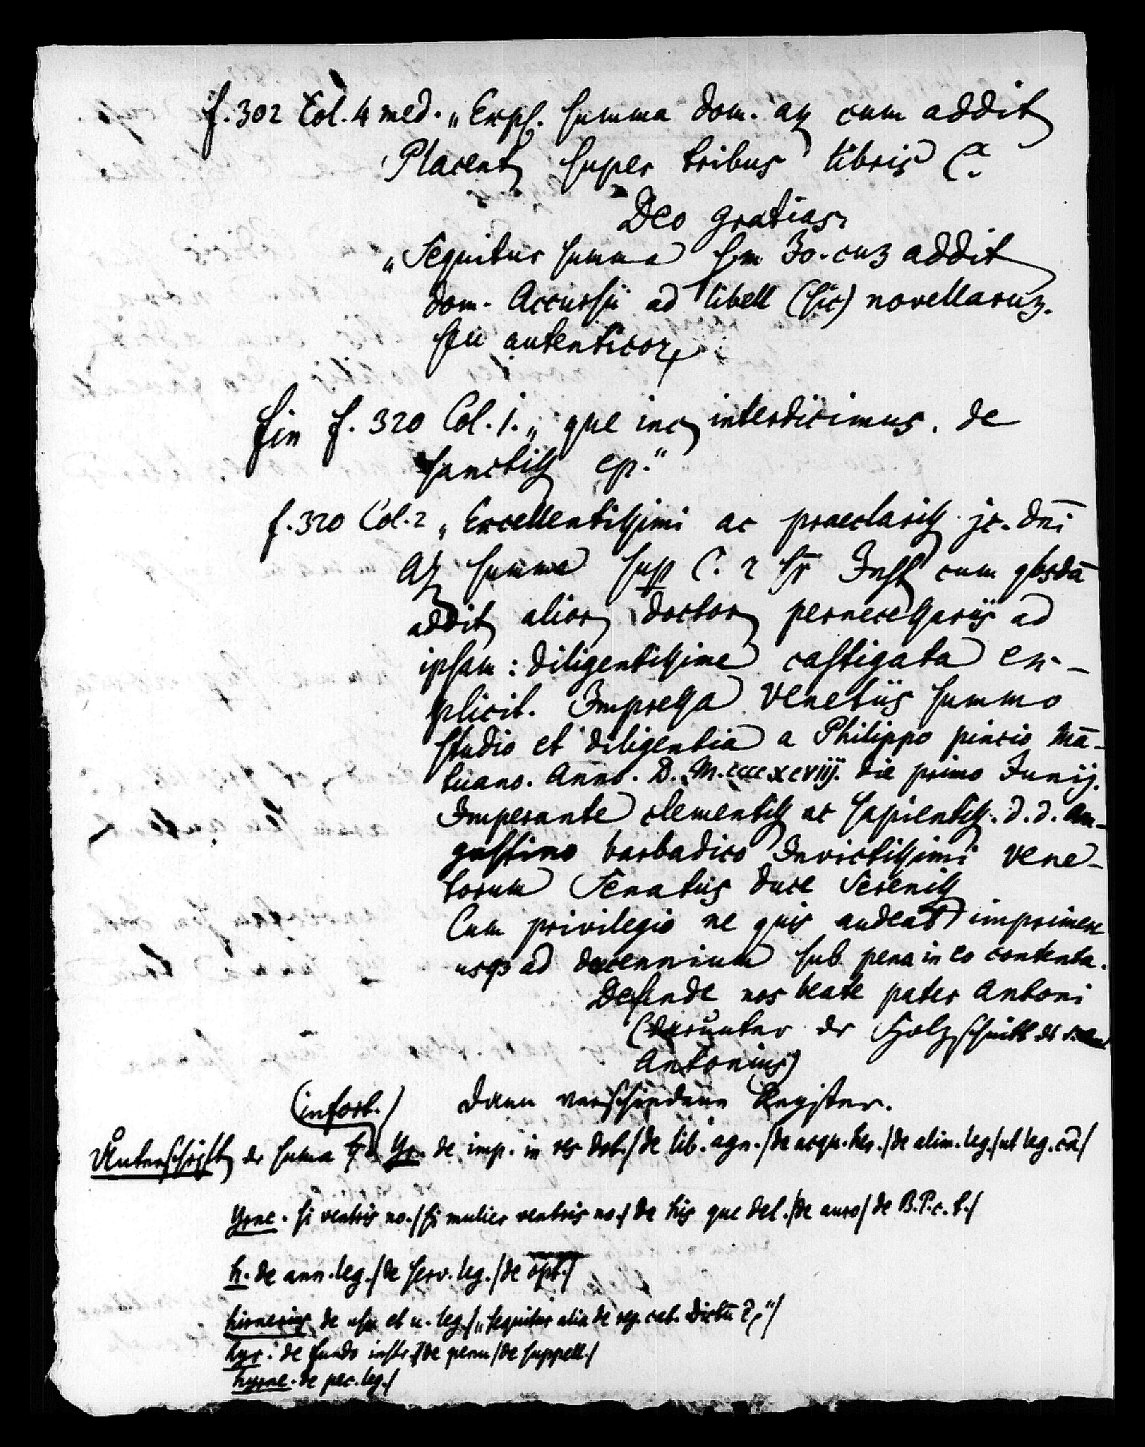 f. 302 Col. 4 med. „Expl. summa dom. az cum addit
Placent super tribus libris C.
Deo gratias.
„Sequitur summa Jo. cuz addit
dom. Accursii ad libell (sic) novellaruz.
seu autenticoꝝ
fin f. 320 Col. 1. „ que inc interdicimus. de
sanctiss ep.“
f. 320 Col. 2 „Excellentissimi ac praeclariss jc. dn̄i
Az summa sup C. 2 Inst cum qbsdā
addit alior doctor pernecessariis ad
ipsam: diligentissime castigata ex-
plicit. Impressa Venetiis summo
studio et diligentia a Philippo pincio Mā-
tuano. Anno. D. M.ccccxcviij. die primo Junij.
Imperante clementiss ac sapientiss. d. d. Au-
gustino barbadico Invictissimi Vene-
torum Senatus duce Sereniss
Cum privilegio ne quis audeat imprimere
usqꝫ ad decennium sub pena in eo contenta.
Defende nos beate pater Antoni
(darunter der Holzschnitt des
Antonius)
(infort.) Dann verschiedene Register.
Unterschrift der summa Yr. de imp. in res dot./de lib. agn./de acqu. her./de alim. leg./ut leg. cā/
Yrne. si ventris no./si mulier ventris no./de his que del./de auro/de B.P.c.t./
h. de ann. leg./de serv. leg./de opt./
hirnerius de usu et u. leg./„Sequitur alia de rep. cat. Dictū
hyr: de fundo instr./de penu/de suppell./
hyrne. de pec. leg./